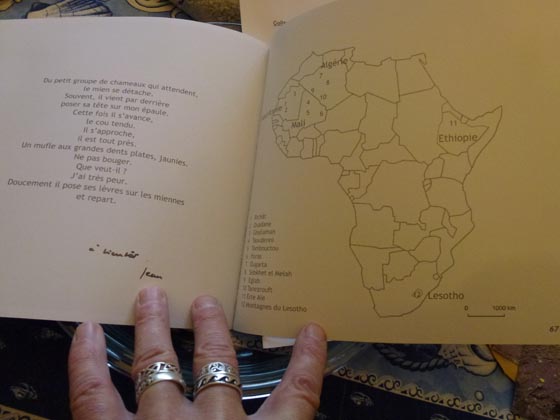 Du petit groupe de chameaux qui attendent,
le mien se détache.
Souvent, il vient par derrière
poser sa tête sur mon épaule.
Cette fois il s'avance,
le cou tendu.
Il s'approche,
il est tout près.
Un mufle aux grandes dents plates, jaunies.
Ne pas bouger.
Que veut-il ?
J'ai très peur.
Doucement il pose ses lèvres sur les miennes
et repart.
à bientôt
Jean
Algérie
7
8
9
10
1
2
3
4
5
6
Mali
11
Ethiopie
12
Lesotho
0 1000 km
1
2 Ouadane
3
4 Taoudenni
5 Tombouctou
6
7 Ougarta
8 Sebkhet el Melah
9 Eglab
10 Tanezrouft
11 Erta Ale
12 Montagnes du Lesotho
67